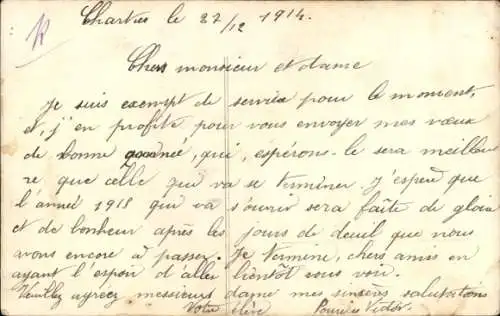 Chartres le 27/12 1914.
Chers monsieur et dame
Je suis exempt de service pour le moment,
et, j'en profite pour vous envoyer mes vœux
de bonne année, qui, espérons-le sera meilleu
re que celle qui va se terminer. J'espère que
l'année 1918 qui va s'ouvrir sera faite de gloire
et de bonheur après les jours de deuil que nous
avons encore à passer. Je termine, chers amis en
ayant l'espoir d'aller bientôt vous voir.
Veuillez agréez messieurs dame mes sincères salutations
Votre élève Victor.